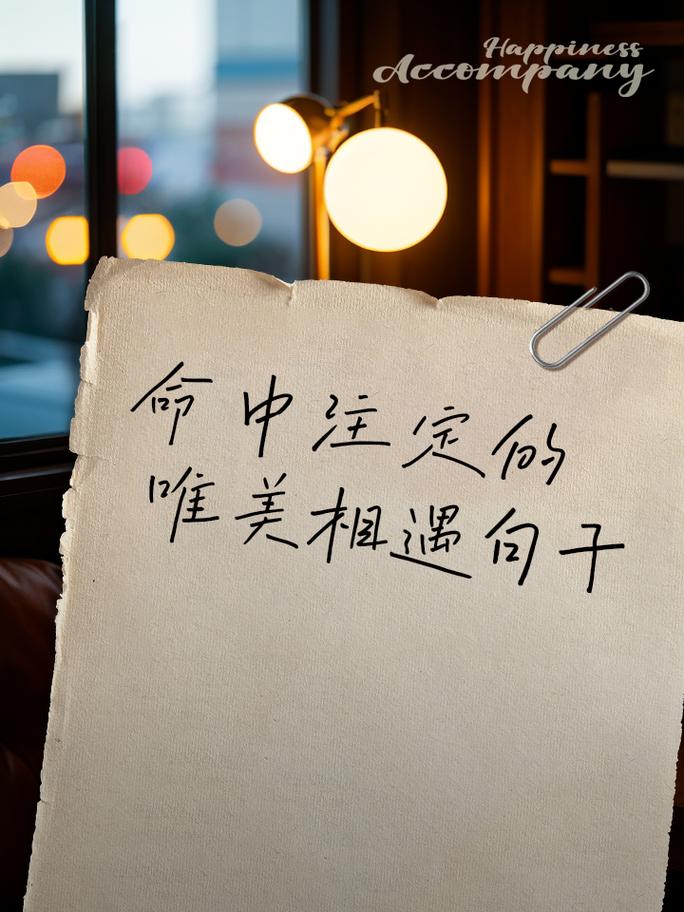 Happiness
Accompany
命中注定的
唯美相遇句子